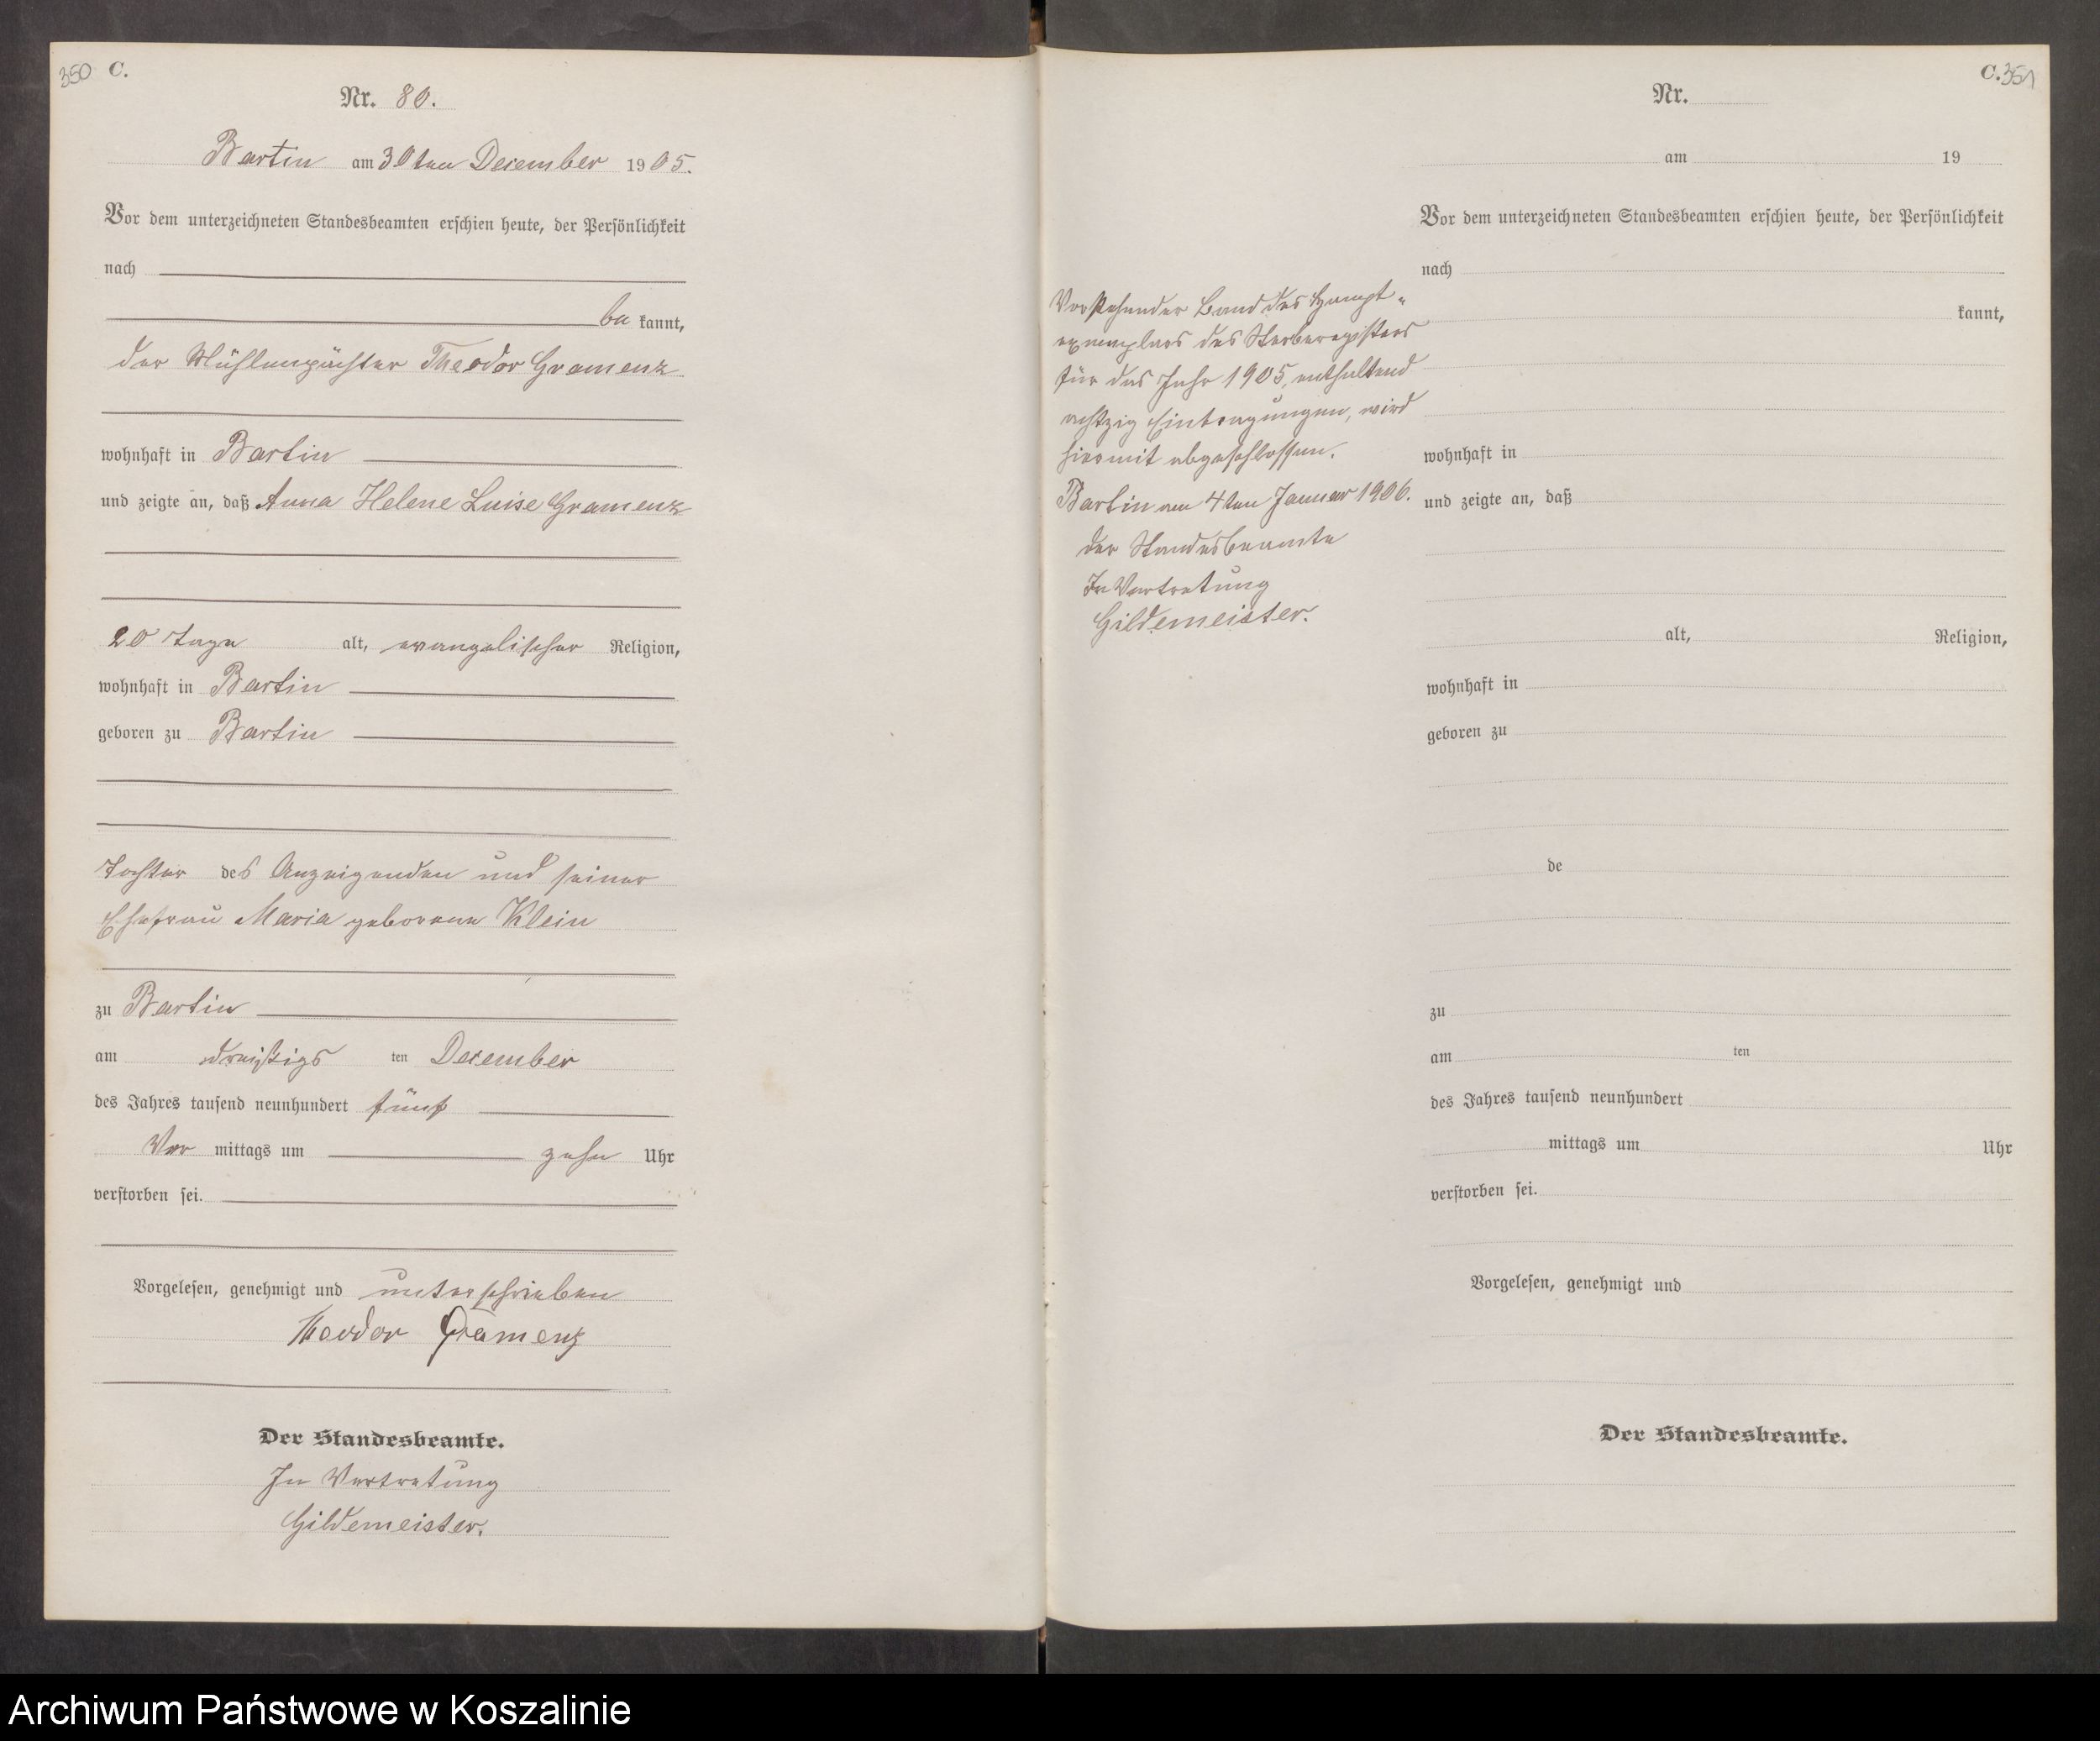 350 C.
Nr. 80.
Bartin am 30ten Dezember 1905.
Vor dem unterzeichneten Standesbeamten erschien heute, der Persönlichkeit
nach
be kannt,
der Mühlenpächter Theodor Gramenz
wohnhaft in Bartin
und zeigte an, daß Anna Helene Luise Gramenz
20 Tage alt, evangelischer Religion,
wohnhaft in Bartin
geboren zu Bartin
Tochter des Anzeigenden und seiner
Ehefrau Maria geborene Klein
zu Bartin
am dreißigs ten Dezember
des Jahres tausend neunhundert fünf
Vor mittags um zehn Uhr
verstorben sei.
Vorgelesen, genehmigt und unterschrieben
Theodor Gramenz
Der Standesbeamte.
In Vertretung
Gildemeister.
C. 351
Nr.
am 19
Vor dem unterzeichneten Standesbeamten erschien heute, der Persönlichkeit
nach
kannt,
wohnhaft in
und zeigte an, daß
alt, Religion,
wohnhaft in
geboren zu
de
zu
am ten
des Jahres tausend neunhundert
mittags um Uhr
verstorben sei.
Vorgelesen, genehmigt und
Der Standesbeamte.
Vorstehender Band des Haupt-
exemplars des Sterberegisters
für das Jahr 1905, enthaltend
achtzig Eintragungen, wird
hiermit abgeschlossen.
Bartin am 4ten Januar 1906.
der Standesbeamte
In Vertretung
Gildemeister.
Archiwum Państwowe w Koszalinie